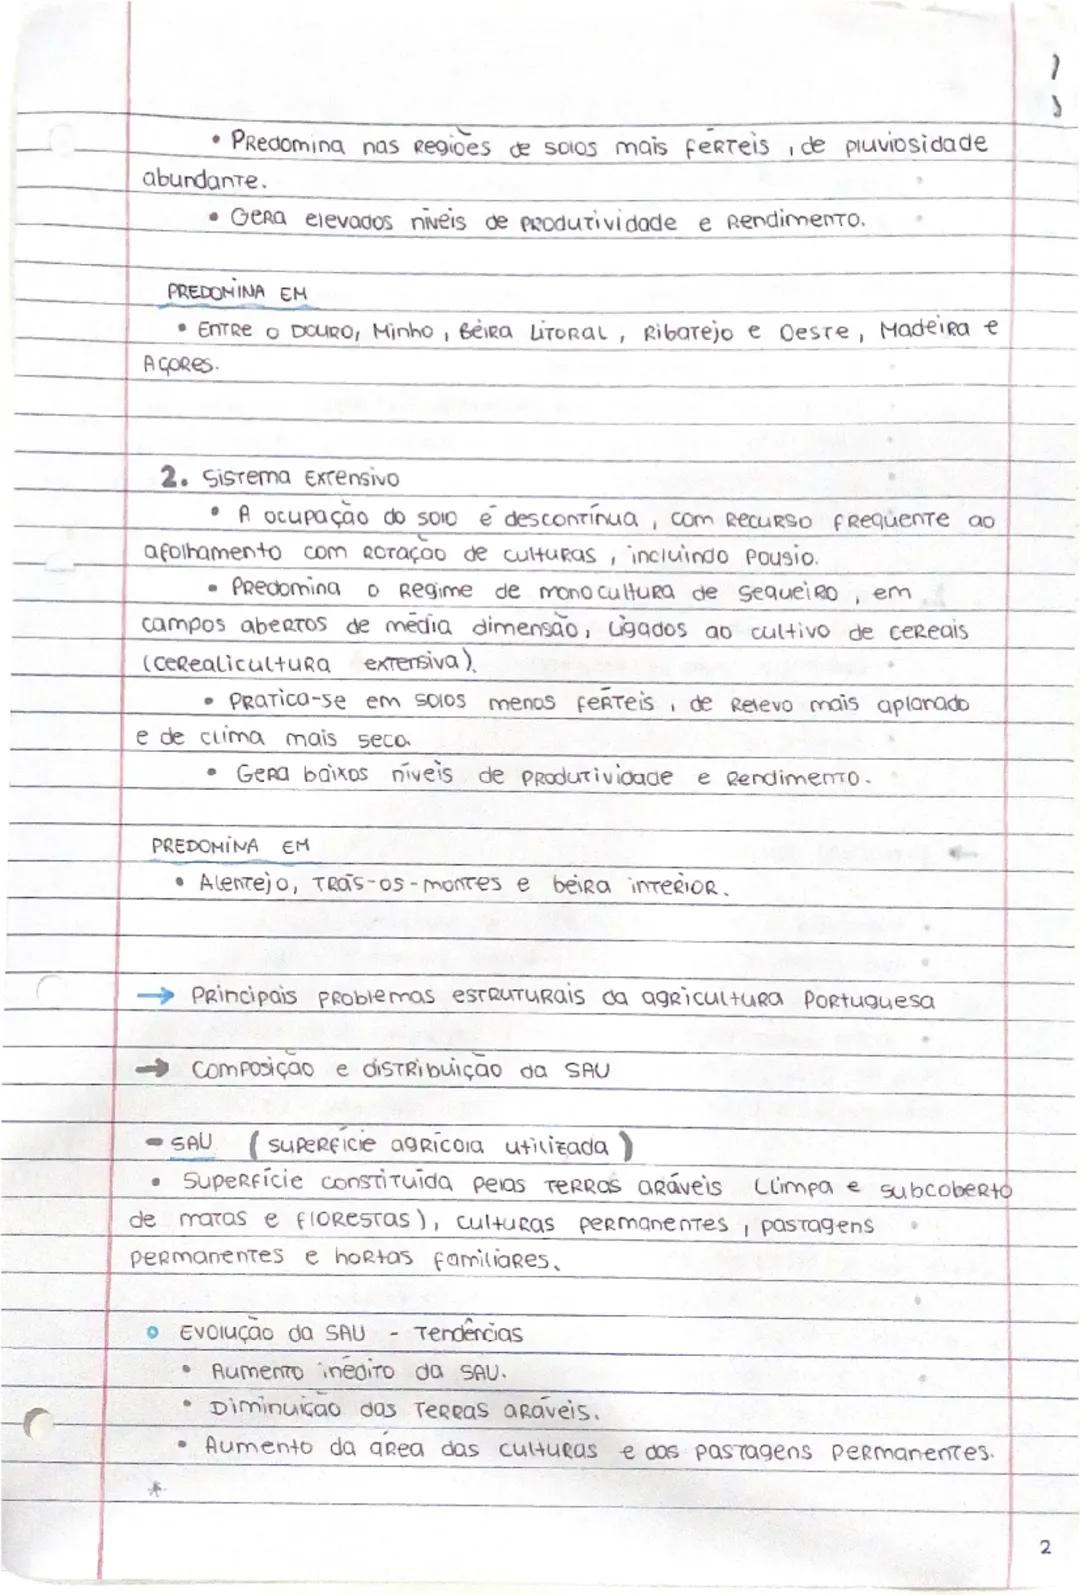 • Predomina nas regiões de solos mais férteis, de pluviosidade
abundante.
• Gera elevados níveis de produtividade e rendimento.
PREDOMINA EM
• Entre o Douro, Minho, Beira Litoral, Ribatejo e Oeste, Madeira e
Açores.
2. Sistema Extensivo
• A ocupação do solo é descontínua, com recurso frequente ao
afolhamento com rotação de culturas, incluindo pousio.
• Predomina o regime de monocultura de sequeiro, em
campos abertos de média dimensão, ligados ao cultivo de cereais
(cerealicultura extensiva).
• Pratica-se em solos menos férteis, de relevo mais aplanado
e de clima mais seco.
• Gera baixos níveis de produtividade e rendimento.
PREDOMINA EM
• Alentejo, Trás-os-montes e beira interior.
→ Principais problemas estruturais da agricultura Portuguesa
→ Composição e distribuição da SAU
- SAU (superfície agrícola utilizada)
• Superfície constituída pelas terras aráveis (limpa e subcoberto
de matas e florestas), culturas permanentes, pastagens
permanentes e hortas familiares.
○ Evolução da SAU - Tendências
• Aumento inédito da SAU.
• Diminuição das terras aráveis.
• Aumento da área das culturas e das pastagens permanentes.
*
2